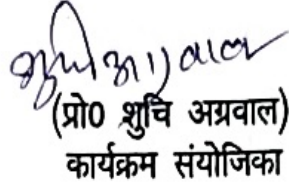 शुचि अग्रवाल
(प्रो0 शुचि अग्रवाल)
कार्यक्रम संयोजिका